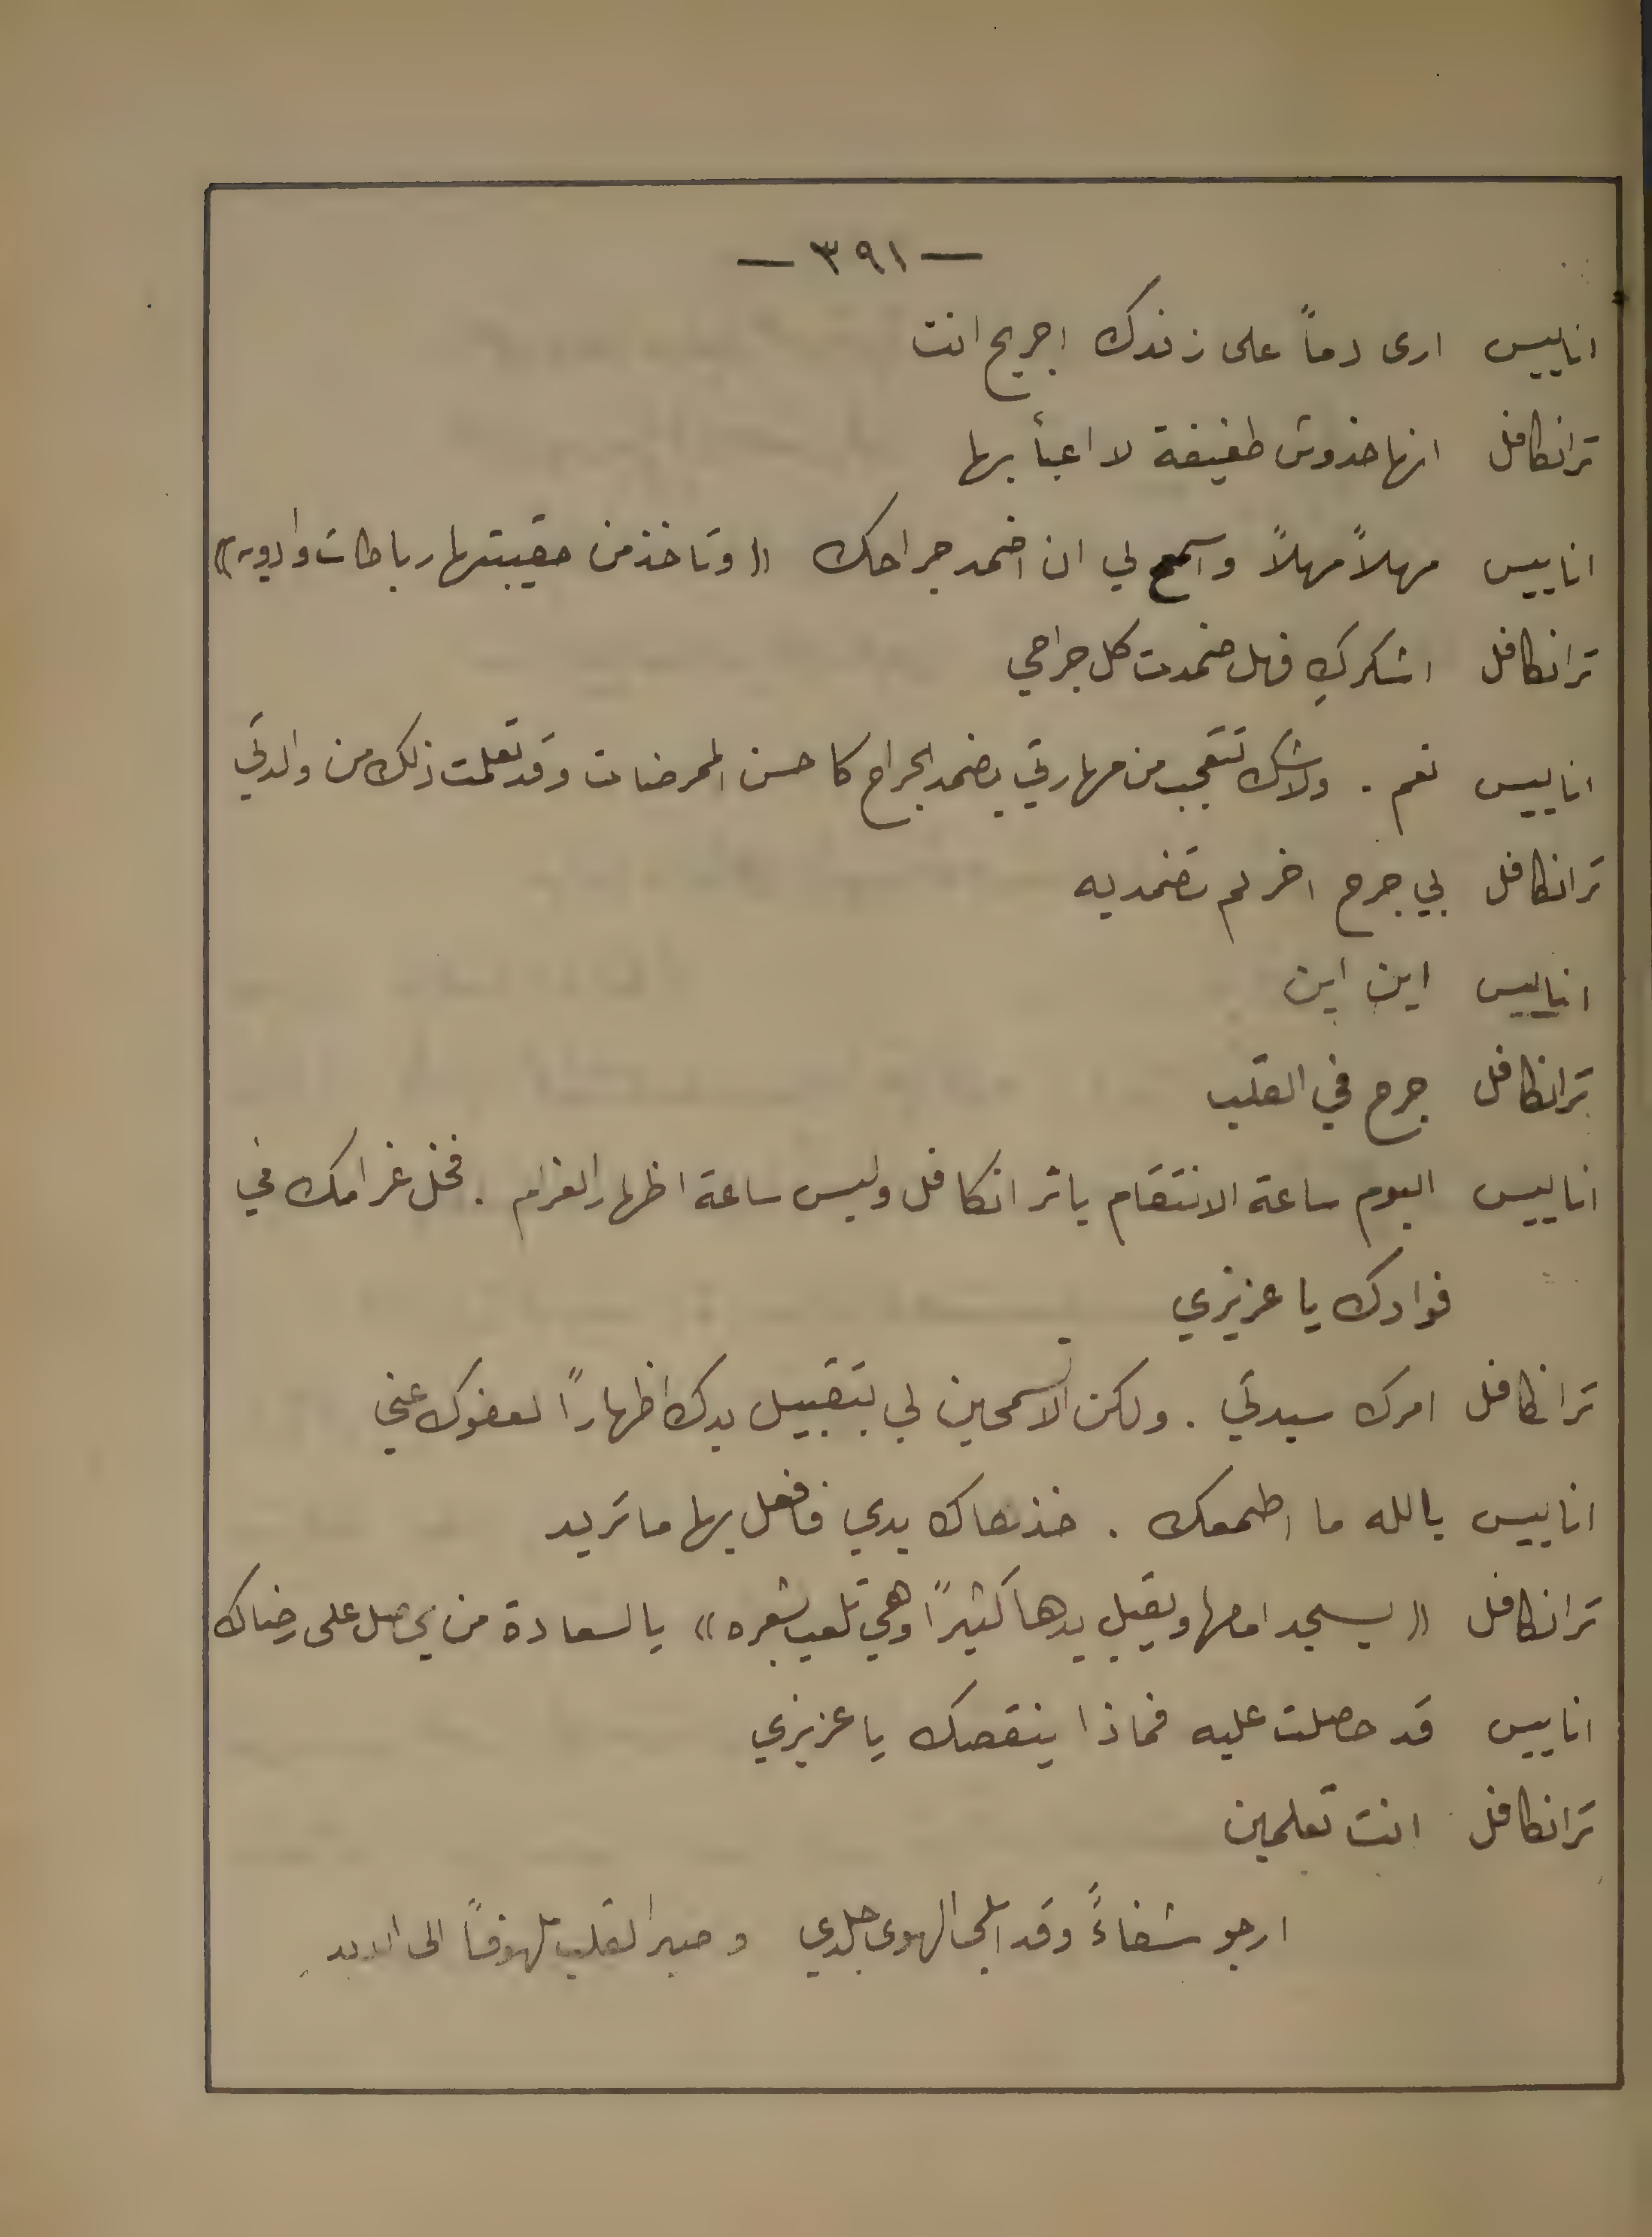 — ٣٩١ —
اناييس ارى دماً على زندك اجريح انت
ترانكافل انها خدوش طفيفة لا اعبأ بها
اناييس مهلاً مهلاً واسمح لي ان اضمد جراحك ((وتاخذ من حقيبتها رباطات وادويه))
ترانكافل اشكركِ فهل ضمدت كل جراحي
اناييس نعم . ولاشك تتعجب من مهارتي بضمد الجراح كاحسن الممرضات وقد تعلمت ذلك من والدتي
ترانكافل بي جرح اخر لم تضمديه
اناييس اين اين
ترانكافل جرح في القلب
اناييس اليوم ساعة الانتقام ياترانكافل وليس ساعة اظهار الغرام . فخل غرامك في
فوادك يا عزيزي
ترانكافل امرك سيدتي . ولكن الا تسمحين لي بتقبيل يدك اظهاراً لعفوك عني
اناييس يالله ما اطمعك . خذ هاك يدي فافعل بها ماتريد
ترانكافل ((يسجد امامها ويقبل يدها كثيراً وهي تلعب بشعره)) يالسعادة من يحصل على رضاك
اناييس قد حصلت عليه فماذا ينقصك يا عزيزي
ترانكافل انت تعلمين
ارجو شفاءً وقد ابلى الهوى جلدي وصير القلب ملهوفاً الى الابد